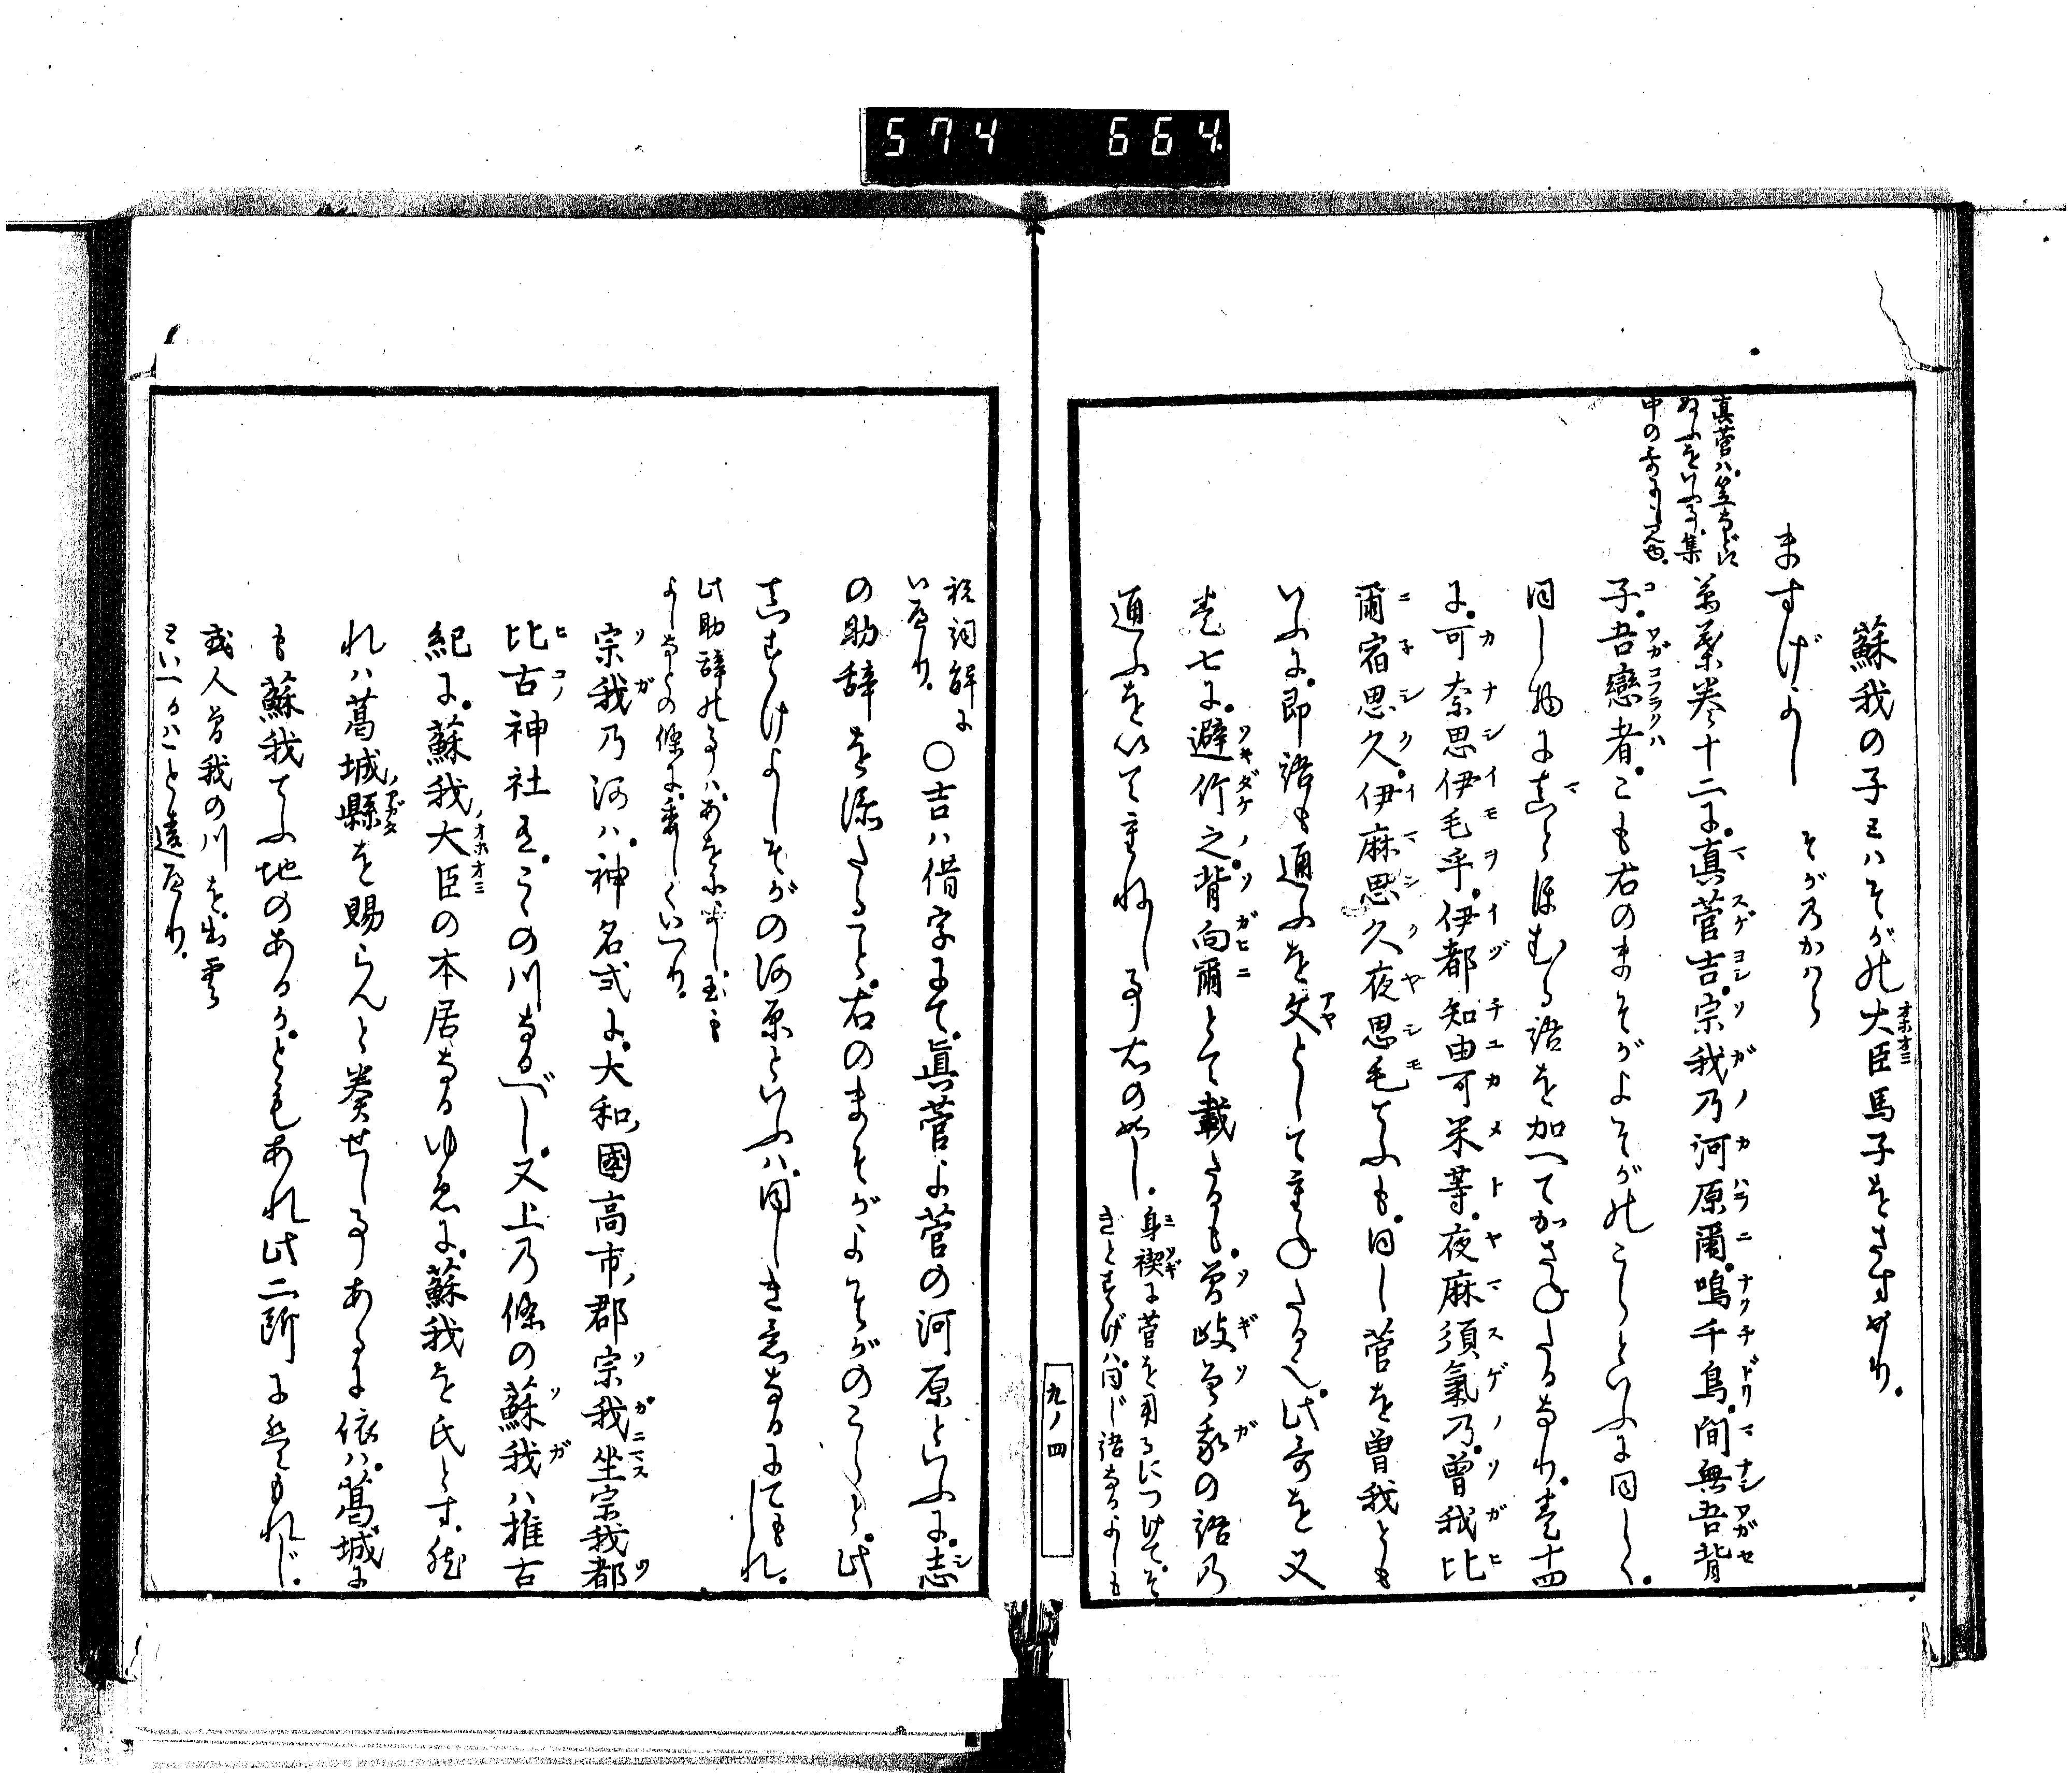 574 664
蘇我の子こハそがの大臣馬子をさすめり。
ますげよし そがのかはら
真菅ハ笠などに
ぬふをいふ事集
中の哥に多し
萬葉巻十二に、真菅吉、宗我乃河原爾、鳴千鳥、間無吾背
子、吾戀者、こも右のまそがよそがのこらといふに同しく、
同し物に真とほむる語を加へてかさねたるなり。巻十四
に、可奈思伊毛乎、伊都知由可米等、夜麻須氣乃、曽我比
爾宿思久、伊麻思久夜思毛てふも、同し菅を曽我とも
いふに、即語も通ふを文としてかさねたる也、此哥を又
巻七に、避竹之、背向爾とて載たるも、曽岐曽我の語乃
通ふをいひて重ねし事右の如し。
身禊に菅を用るにつけて、そ
ぎとすげハ同じ語なるよしも
九ノ四
祝詞解に
いへり。
○吉ハ借字にて、眞菅よ菅の河原といふに、志
の助辞を添たること、右のまそがよそがのこらと、此
ますげよしそがの河原といふハ、同しき意なるにてもしれ。
此助辞の事ハ、あをによし玉も
よしなどの條に、委しくいへり。
宗我乃河ハ、神名式に、大和國高市郡宗我坐宗我都
比古神社有、この川なるべし、又上乃條の蘇我ハ推古
紀に、蘇我大臣の本居なるゆゑに、蘇我を氏とす、然
れハ葛城縣を賜らんと奏せし事あるに依ハ、葛城に
も蘇我てふ地のあるか、ともあれ此二所にはもれじ。
或人曽我の川を、出雲
こいへるハ、こと違へり。